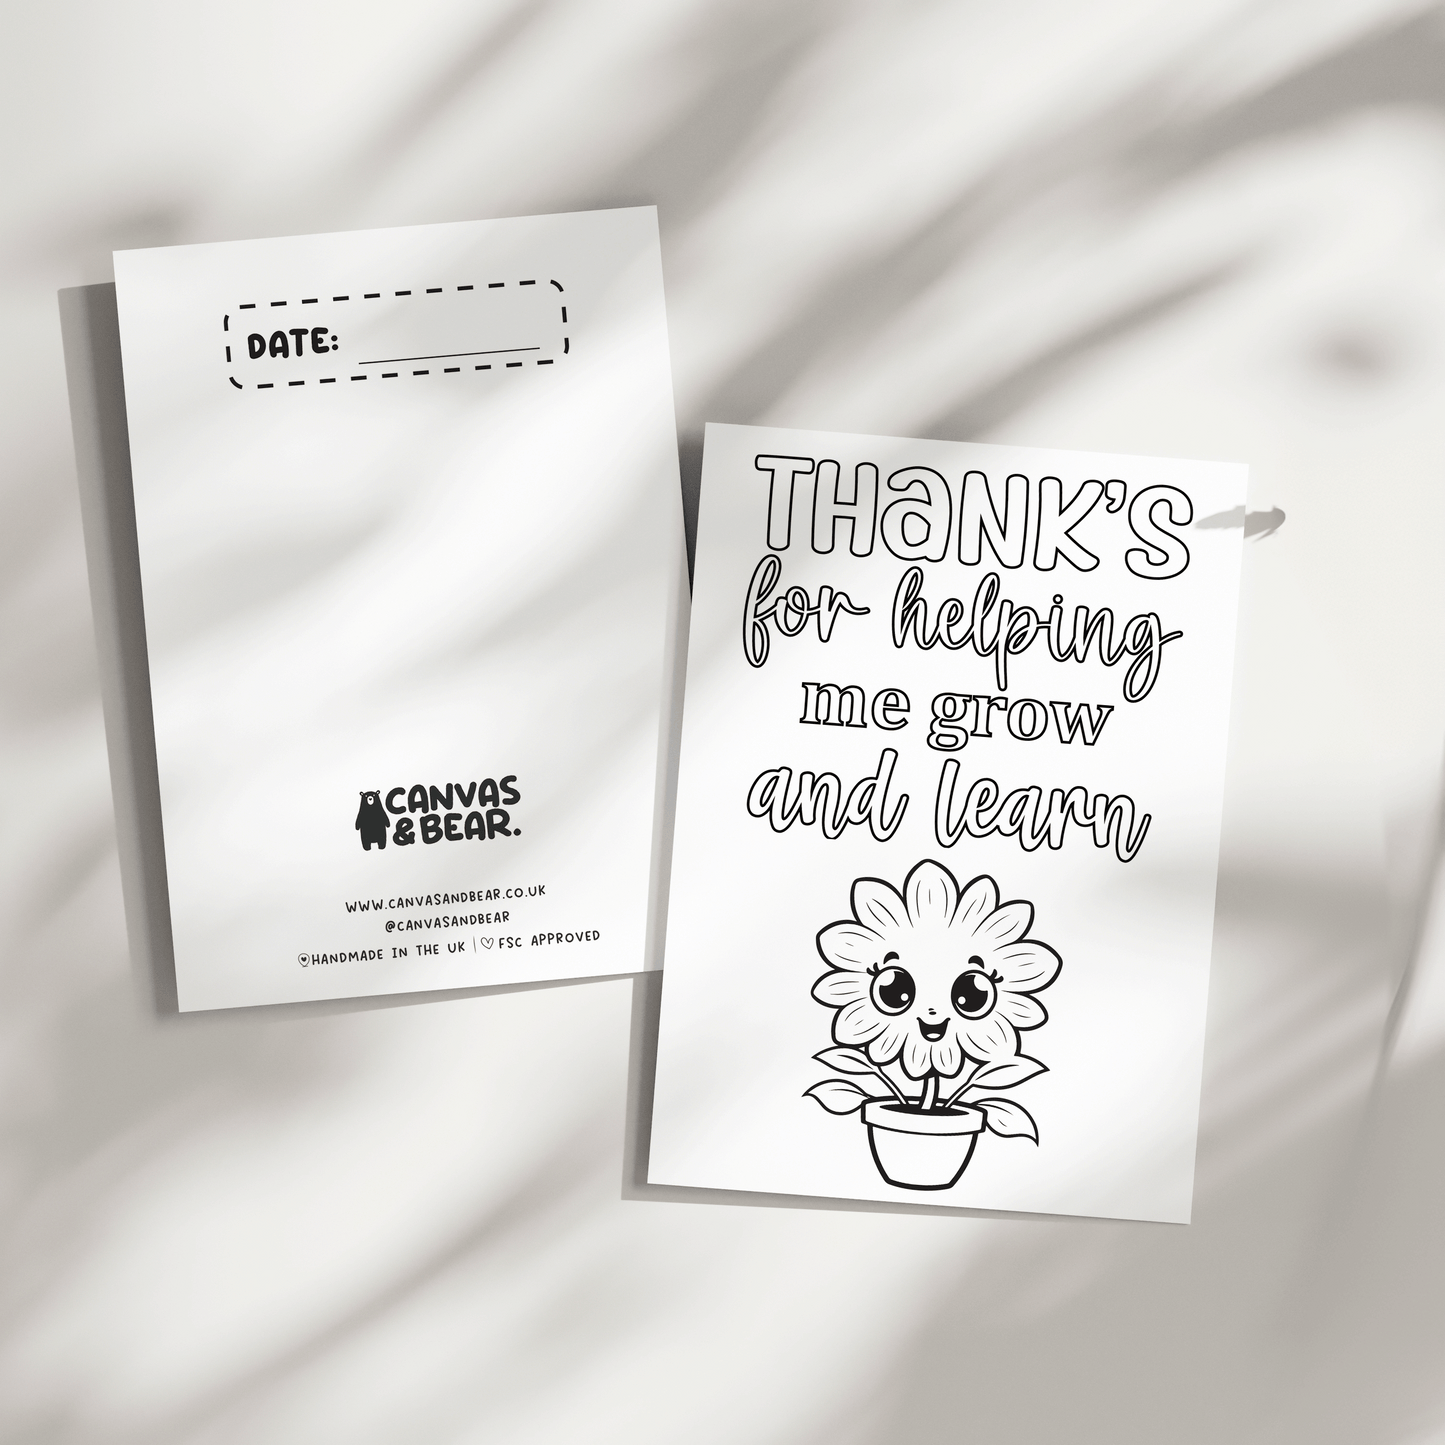 DATE:
CANVAS
& BEAR.
WWW.CANVASANDBEAR.CO.UK
@CANVASANDBEAR
HANDMADE IN THE UK | FSC APPROVED
THANK'S
for helping
me grow
and learn